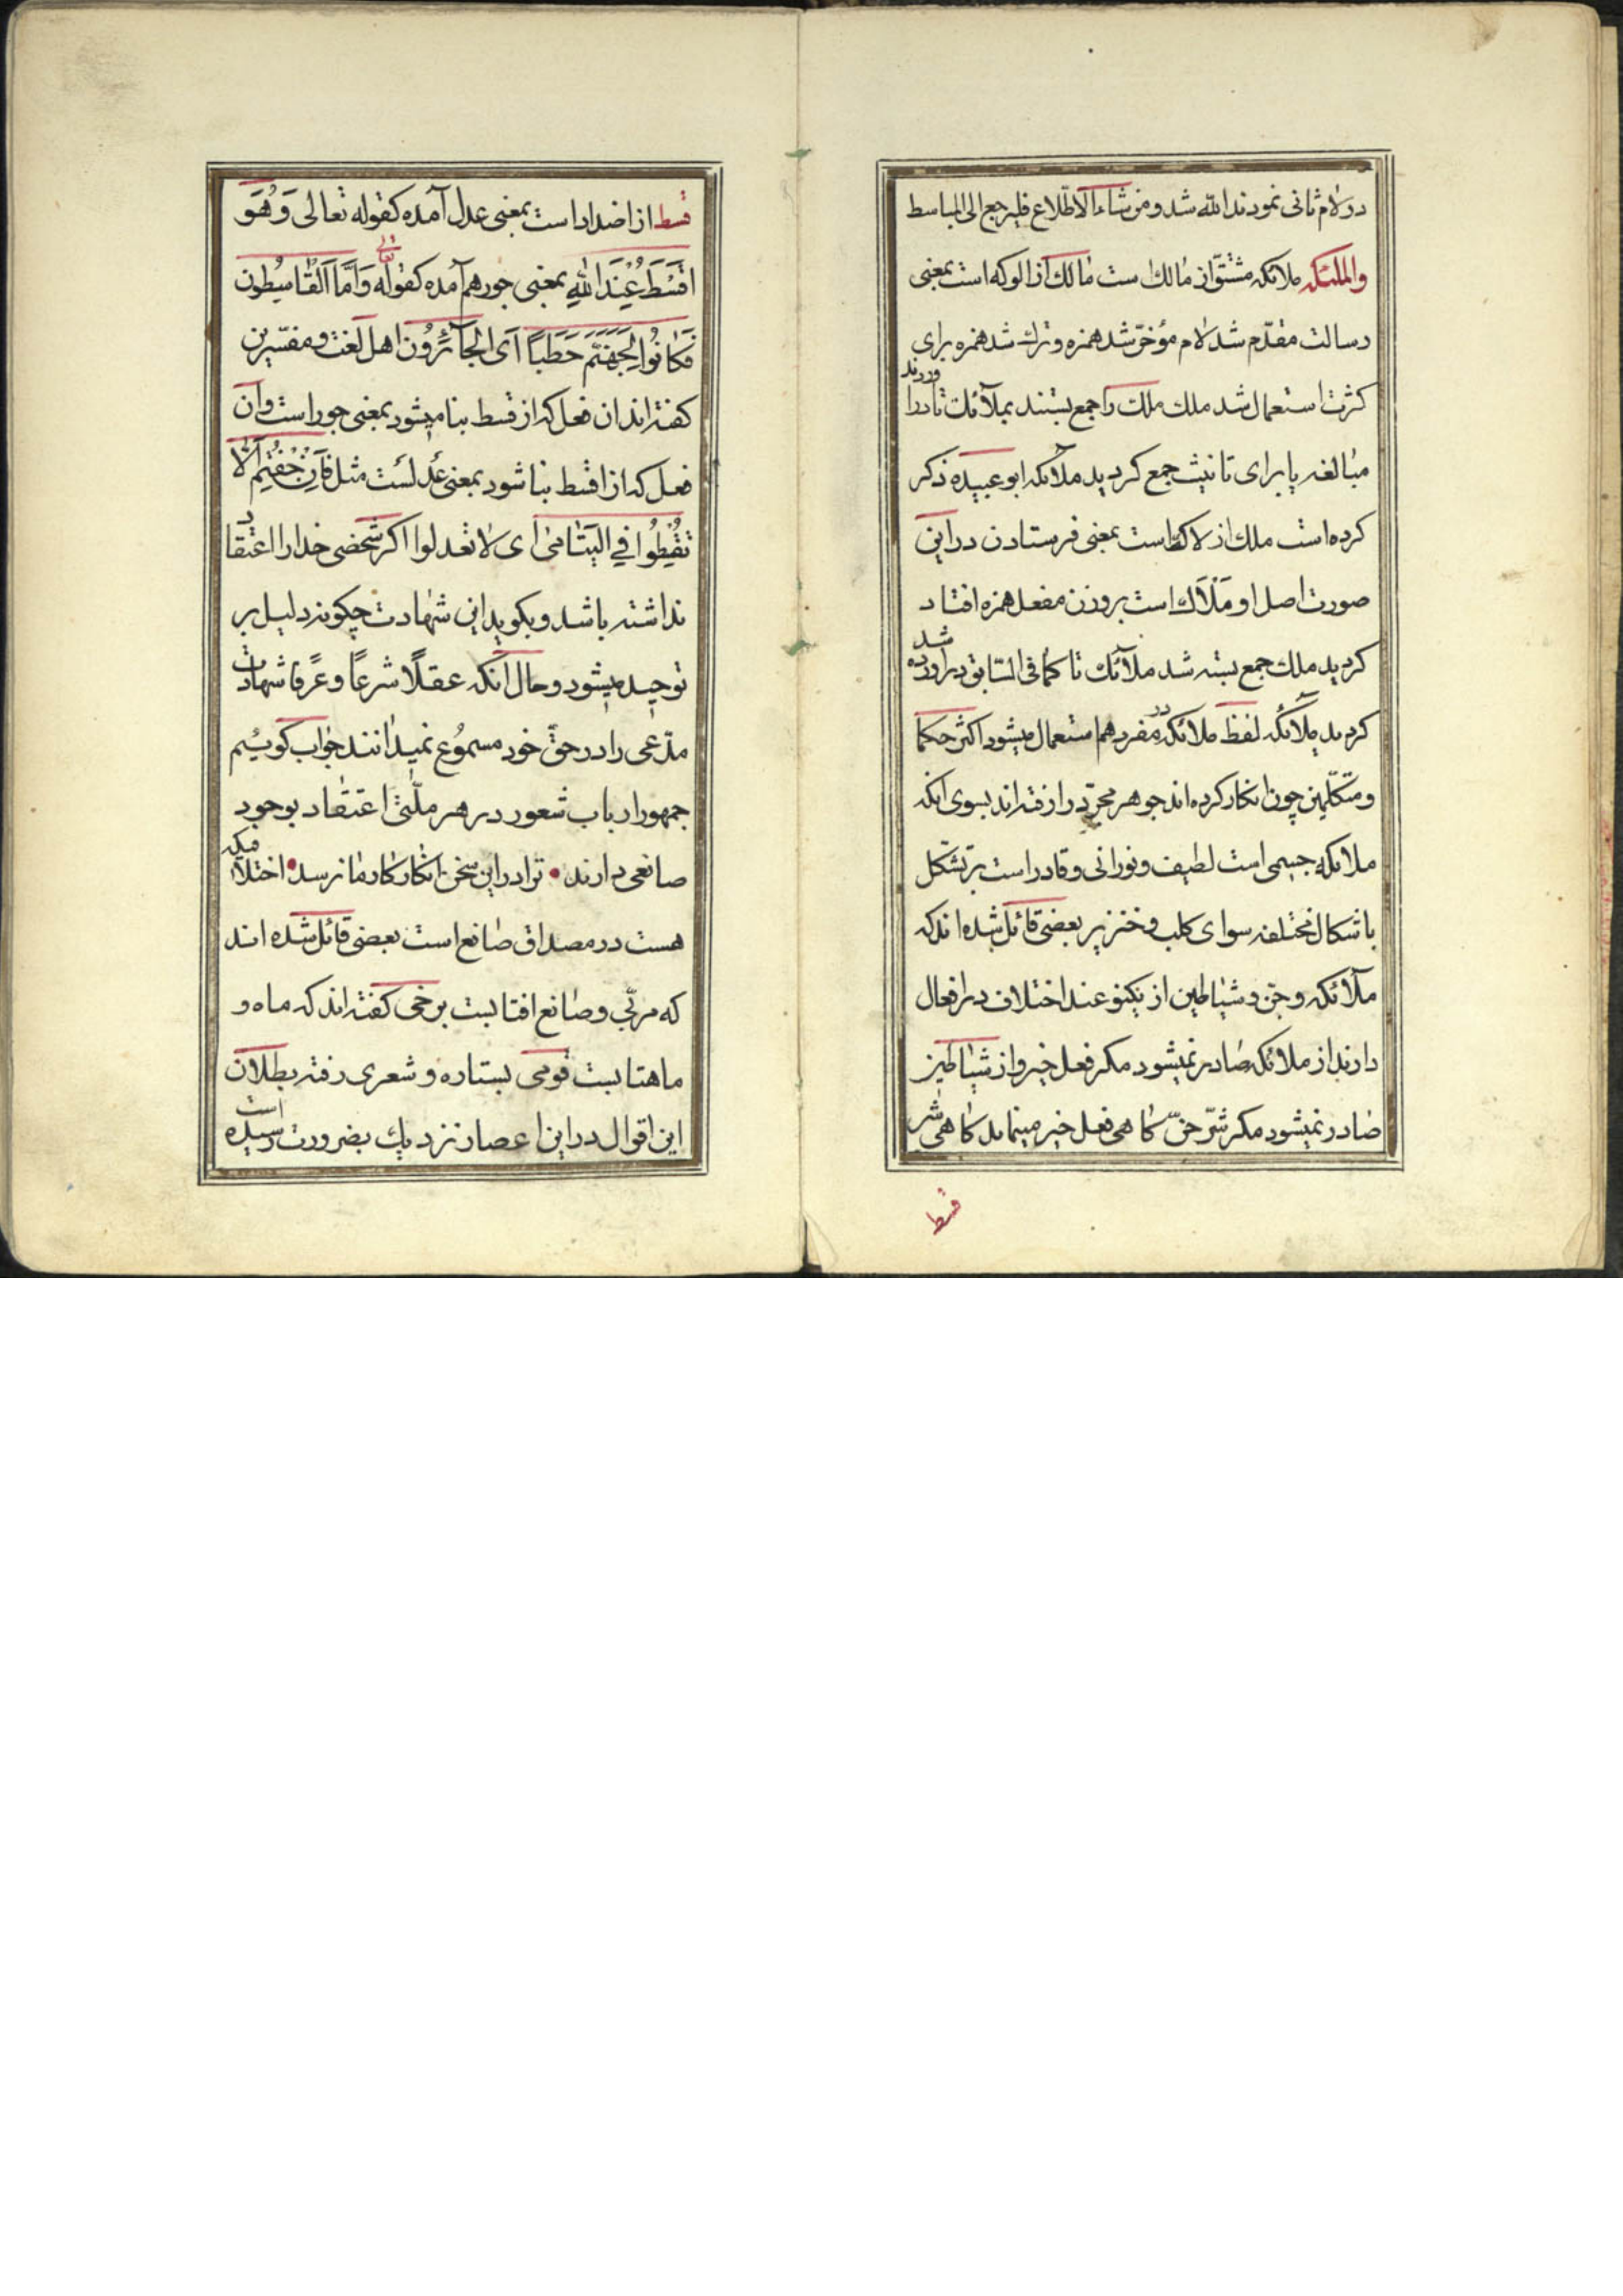 در لام ثانی نمودند الله شد و من شاء الاطلاع فلیرجع الی المباسط
والملئکه ملائکه مشتق از مالك است مالك از الوکه است بمعنی
رسالت مقدّم شد لام مؤخّر شد همزه و ترك شد همزه برای
کثرت استعمال شد ملك ملك را جمع بستند بملآئك تا در اوردند
مبالغه یا برای تانیث جمع کردید ملائکه ابو عبیده ذکر
کرده است ملك از لاك است بمعنی فرستادن در این
صورت اصل او مَلْاَك است بر وزن مفعل همزه افتاد
کردید ملك جمع بسته شد ملآئك تا کما فی السّابق در اورده شد
کردید ملآئکه لفظ ملائکه در مفرد هم استعمال میشود اکثر حکما
و متکلّمین چون انکار کرده اند جوهر مجرّد را رفته اند بسوی انکه
ملائکه جسمی است لطیف و نورانی و قادر است بر تشکّل
باشکال مختلفه سوای کلب و خنزیر بعضی قائل شده اند که
ملآئکه و جن و شیاطین از یکنوعند اختلاف در افعال
دارند از ملائکه صادر نمیشود مکر فعل خیر و از شیاطین
صادر نمیشود مکر شرّ جنّ کاهی فعل خیر مینماید کاهی شر
قسط
قسط از اضداد است بمعنی عدل آمده کقوله تعالی وَ هُوَ
اَقْسَطُ عِنْدَ اللهِ بمعنی جور هم آمده کقوله تعالی وَ اَمَّا اَلْقاسِطُون
فَکانُوا لِجَهَنَّمَ حَطَباً اَی الجآئِرُون اهل لغت و مفسّرین
کفته اند ان فعل که از قسط بنا میشود بمعنی جور است و ان
فعل که از اقسط بنا شود بمعنی عدلست مثل فَاِن خِفْتُم اَلّا
تُقْسِطُوا فِي الیَتامیٰ ای لا تعدلوا اکر شخصی خدا را اعتقاد
نداشته باشد و بکوید این شهادت چکونه دلیل بر
توحید میشود و حال انکه عقلًا شرعًا و عرفًا شهادت
مدّعی را در حقّ خود مسموُع نمیدانند جواب کوئیم
جمهور ارباب شعور در هر ملّتی اعتقاد بوجود
صانعی دارند • ترا در این سخن انکار کار ما نرسد • اختلافیکه
هست در مصداق صانع است بعضی قائل شده اند
که مربّی و صانع افتابست برخی کفته اند که ماه و
ماهتابست قومی بستاره و شعری رفته بطلان
این اقوال در این اعصار نزدیك بضرورت رسیده است